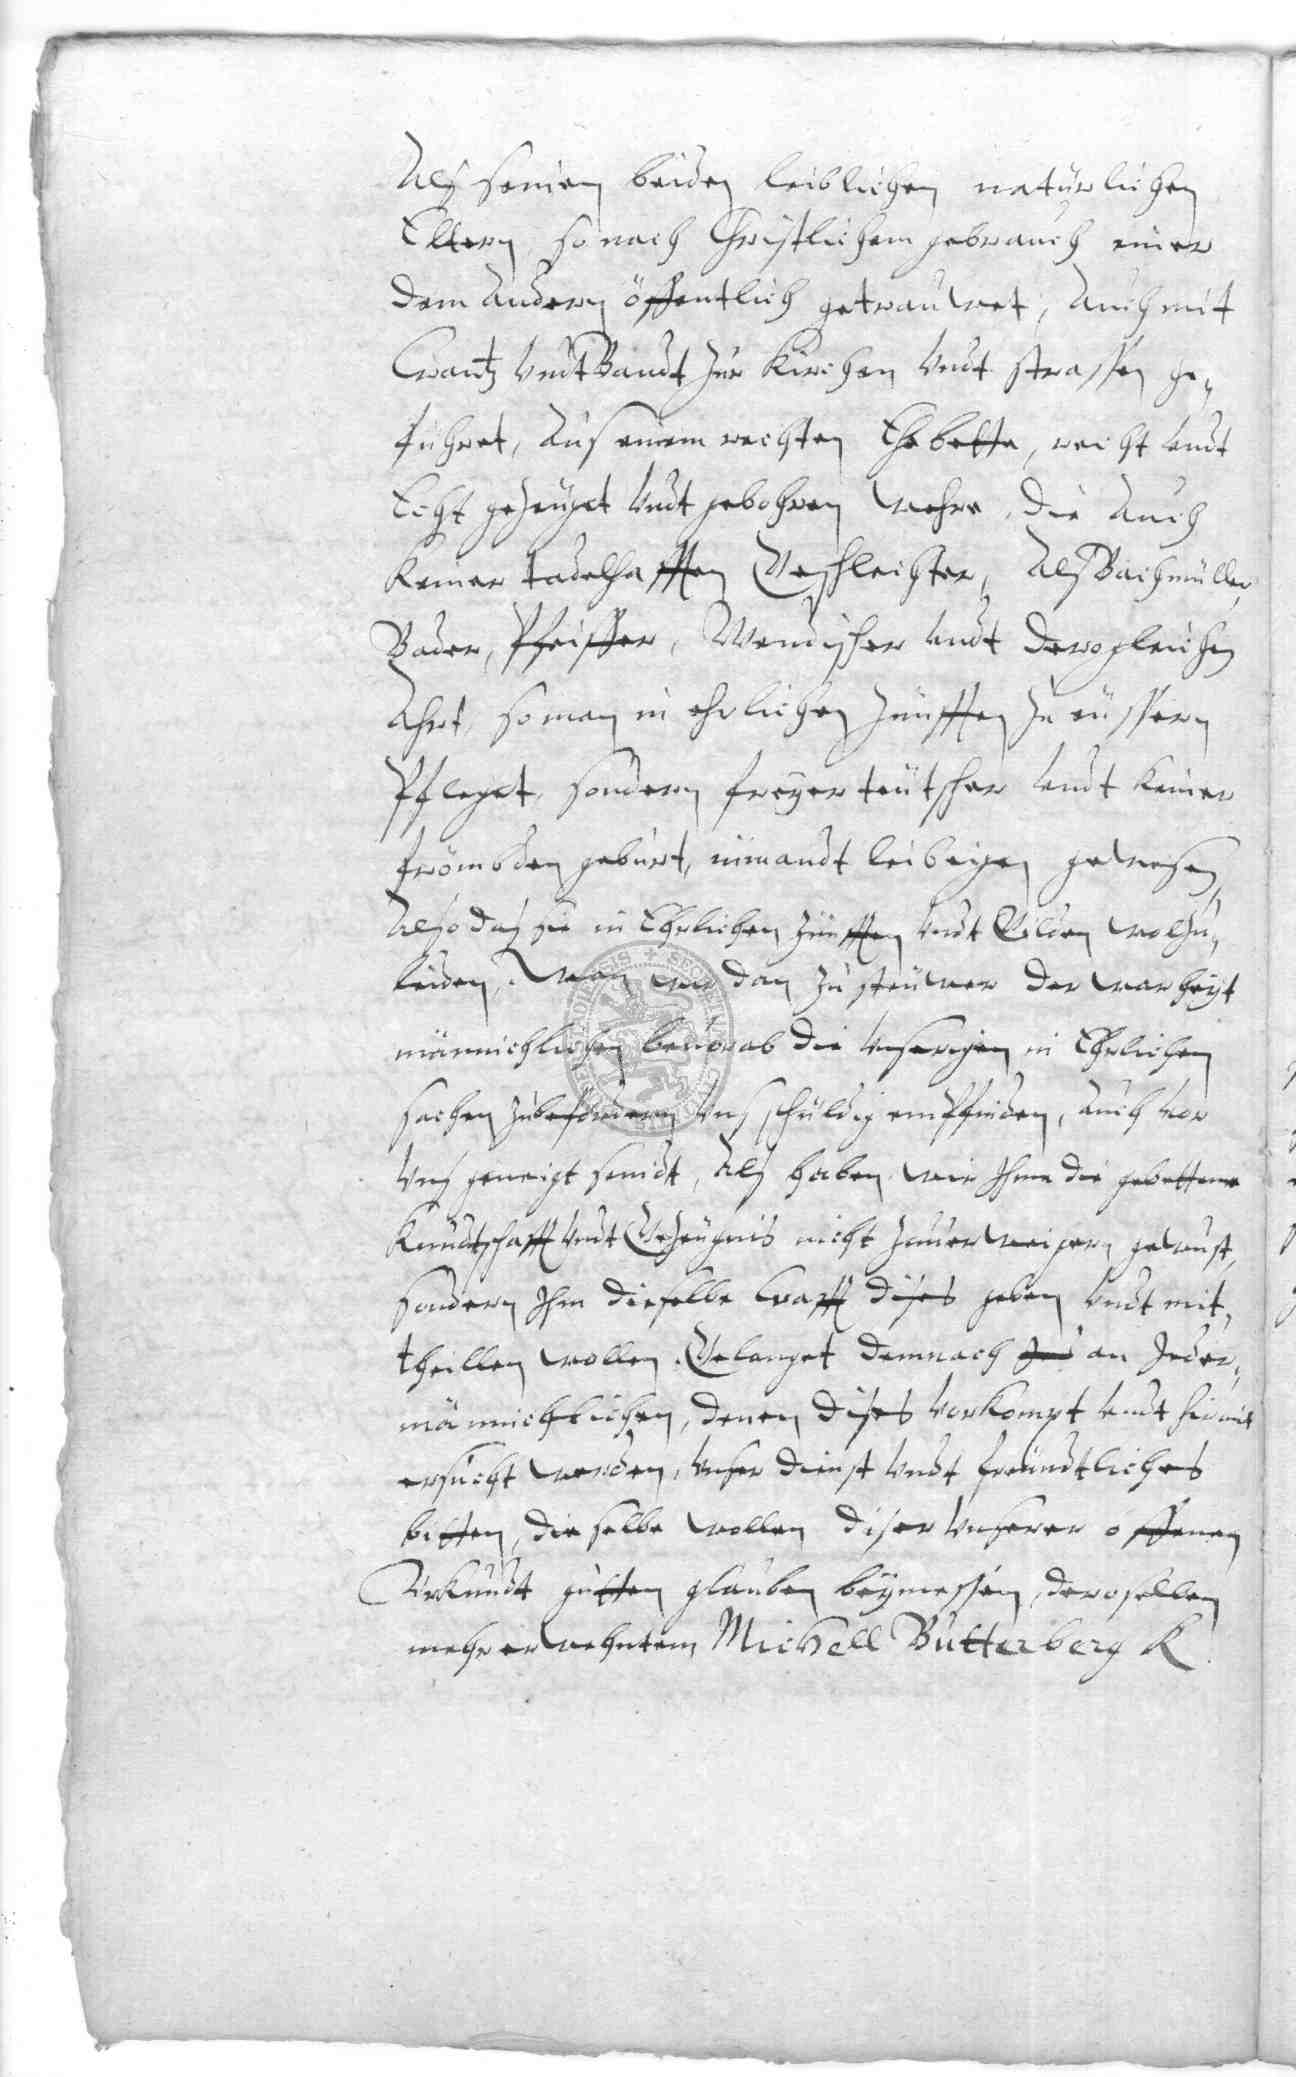 Alß seinen beiden leiblichen natürlichen
Eltern, so nach Christlichem gebrauch einer
dem Andern öffentlich getrauwet, Auch mit
Crantz vndt Bandt zur Kirchen vndt strassen ge„
führet, Aus einem rechten Ehebette, recht vndt
Echt gezeuget vndt gebohren wehre, die Auch
keiner tadelhafften Geschlechter, Alß Bachmüller,
Bader, Pfeiffer, Wendischer vndt dergleichen
Ahrt, so man in ehrlichen Zünfften zu eüssern
Pfleget, sondern freyer teütscher vndt keiner
frömbden geburt, nimandt leibeigen gewesen,
Also daß sie in Ehrlichen Zünfften vndt Gilden wol zu„
leiden, wan wir dan zu steüwer der warheyt
männichlichen beuorab die Unserigen in Ehrlichen
sachen zubefördern Uns schuldig empfinden, auch vor
Uns geneigt seindt, Alß haben wir Ihme die gebettene
Kundtschafft vndt Gezeügnis nicht zuuerweigern gewust,
sondern Ihm dieselbe Crafft dises geben vndt mit„
theillen wollen. Gelanget demnach an Jeder„
männichlichen, denen dises vorkompt vndt hirmit
ersucht werden, Unser dienst vndt freündtliches
bitten, dieselbe wollen diser Unserer offenen
Urkundt gutten glauben beymessen, deroselben
mehrerwehntem Michell Butterberg K
SEDIS SLESVICENSIS